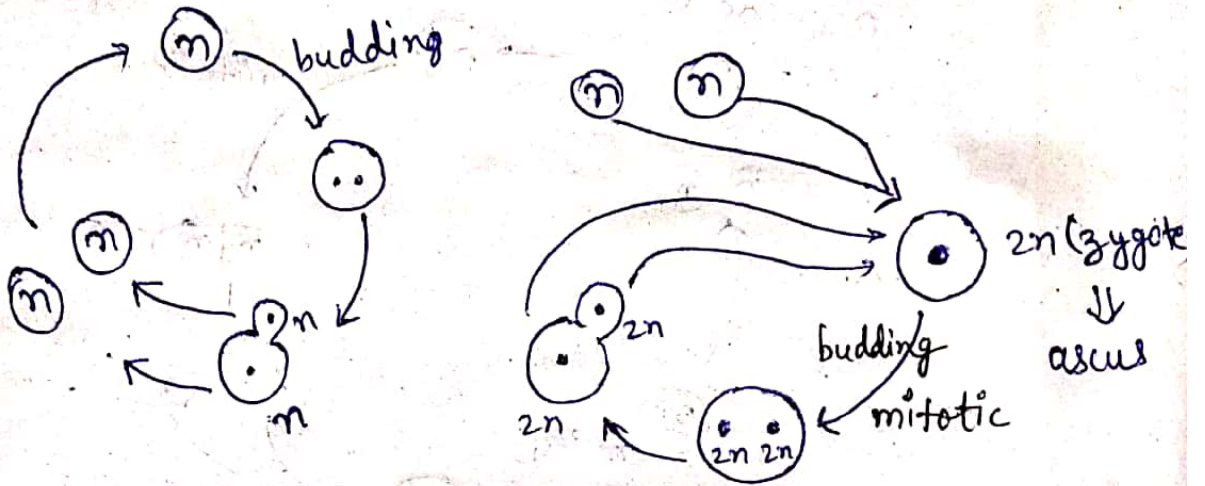 n
budding
n
n
n
n
n
n
n
2n (zygote
⇓
ascus
2n
2n
budding
mitotic
2n 2n